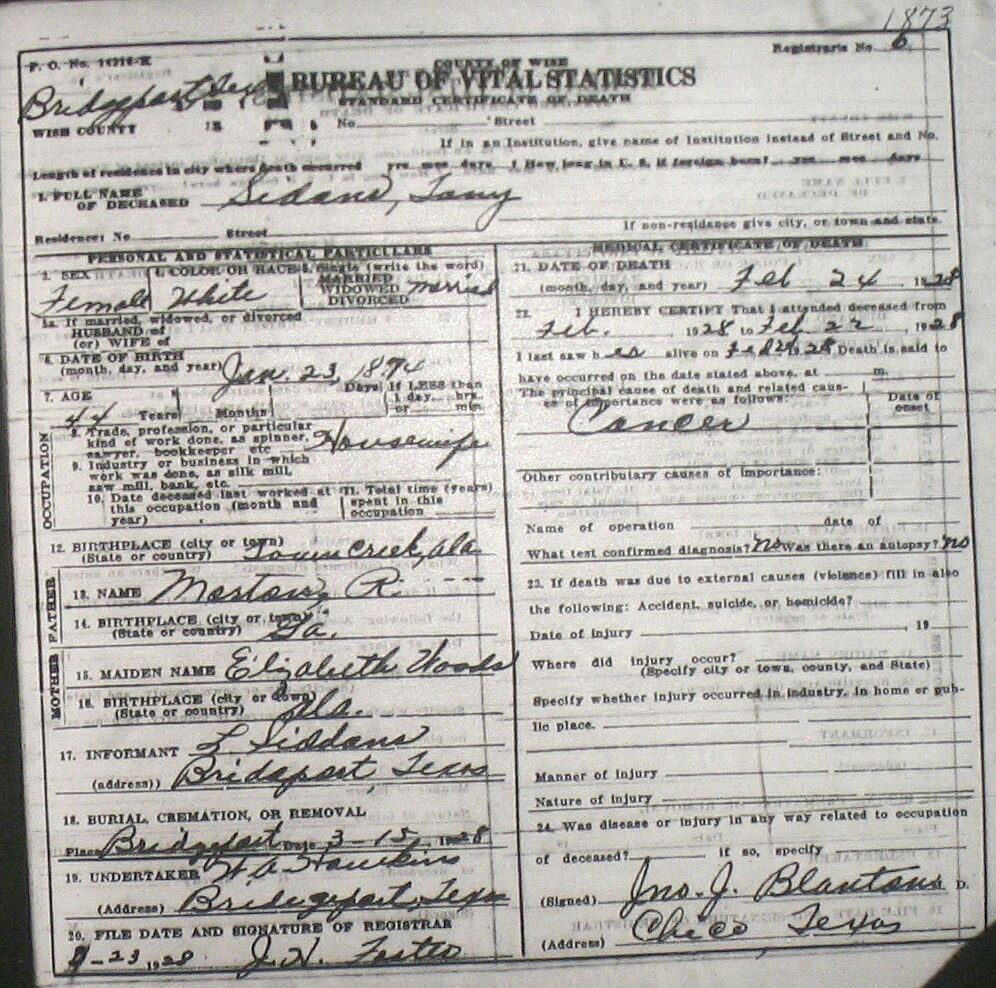 1873
Registrar's No. 6
F. O. No.
COUNTY OF WISE
BUREAU OF VITAL STATISTICS
STANDARD CERTIFICATE OF DEATH
Bridgeport Texas
WISE COUNTY
No. Street
If in an Institution, give name of Institution instead of Street and No.
Length of residence in city where death occurred yrs mos days How long in U. S. if foreign born? yrs mos days
1. FULL NAME OF DECEASED Sidans, Tany
If non-residance give city, or town and state.
Residence: No Street
PERSONAL AND STATISTICAL PARTICULARS
3. SEX Female
4. COLOR OR RACE White
5. Single (write the word)
MARRIED
WIDOWED
DIVORCED
Married
5a. If married, widowed, or divorced
HUSBAND of
(or) WIFE of
6. DATE OF BIRTH
(month, day, and year) Jan 23, 1874
7. AGE
44 Years Months Days If LESS than
1 day hrs.
or min.
OCCUPATION
8. Trade, profession, or particular
kind of work done, as spinner,
sawyer, bookkeeper etc Housewife
9. Industry or business in which
work was done, as silk mill,
saw mill, bank, etc.
10. Date deceased last worked at
this occupation (month and
year)
11. Total time (years)
spent in this
occupation
12. BIRTHPLACE (city or town)
(State or country) Creek, Ala
FATHER
13. NAME R.
14. BIRTHPLACE (city or town)
(State or country) Ga.
MOTHER
15. MAIDEN NAME Elizabeth Woods
16. BIRTHPLACE (city or town)
(State or country) Ala.
17. INFORMANT L Siddans
(address)) Bridgeport, Texas
18. BURIAL, CREMATION, OR REMOVAL
Place Bridgeport Date 3-15, 1928
19. UNDERTAKER W.A. Hawkins
(Address) Bridgeport, Texas
20. FILE DATE AND SIGNATURE OF REGISTRAR
-23 1928 J.H. Foster
MEDICAL CERTIFICATE OF DEATH
21. DATE OF DEATH
(month, day, and year) Feb 24 1928
22. I HEREBY CERTIFY That I attended deceased from
Feb. 1928 to Feb 22 1928
I last saw her alive on Feb 1928 Death is said to
have occurred on the date stated above, at m.
The principal cause of death and related cau-
es of importance were as follows:
Date of
onset
Cancer
Other contributory causes of importance:
Name of operation date of
What test confirmed diagnosis? no Was there an autopsy? no
23. If death was due to external causes (violence) fill in also
the following: Accident, suicide, or homicide?
Date of injury 19
Where did injury occur?
(Specify city or town, county, and State)
Specify whether injury occurred in industry, in home or pub-
lic place.
Manner of injury
Nature of injury
24. Was disease or injury in any way related to occupation
of deceased? if so, specify
(Signed) Jno. J. Blanton D.
(Address) Chico Texas